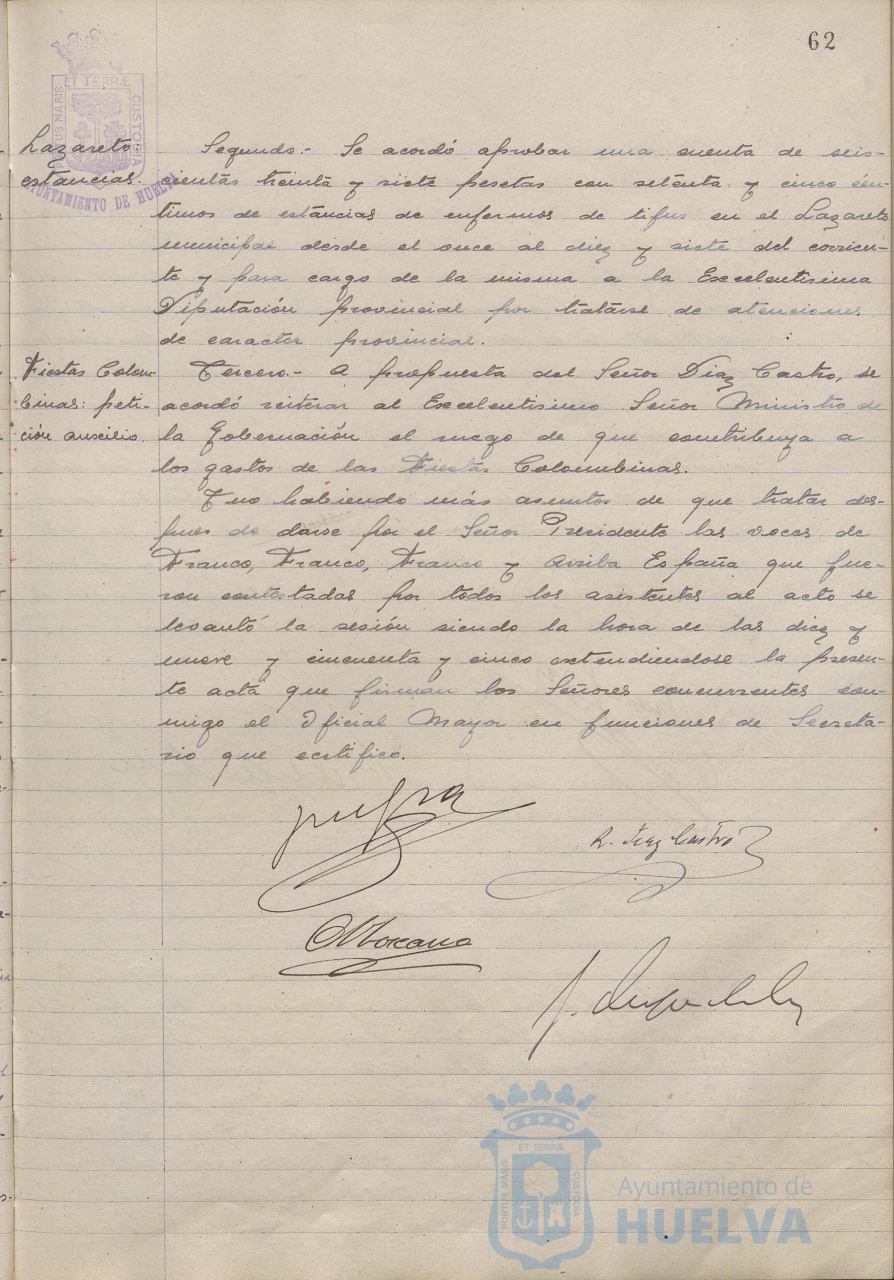 62
PORTUS MARIS ET TERRÆ CUSTODIA
AYUNTAMIENTO DE HUELVA
Lazareto
estancias.
Segundo.- Se acordó aprobar una cuenta de seis-
cientas treinta y siete pesetas con setenta y cinco cén-
timos de estancias de enfermos de tifus en el Lazareto
municipal desde el once al diez y siete del corrien-
te y para cargo de la misma a la Excelentisima
Diputación provincial por tratarse de atenciones
de caracter provincial.
Fiestas Colom-
binas: peti-
ción auxilio.
Tercero.- A propuesta del Señor Diaz Castro, se
acordó reiterar al Excelentisimo Señor Ministro de
la Gobernación el ruego de que contribuya a
los gastos de las Fiestas Colombinas.
Y no habiendo más asuntos de que tratar des-
pues de darse por el Señor Presidente las voces de
Franco, Franco, Franco y Arriba España que fue-
ron contestadas por todos los asistentes al acto se
levantó la sesión siendo la hora de las diez y
nueve y cincuenta y cinco extendiendose la presen-
te acta que firman los Señores concurrentes con-
migo el Oficial Mayor en funciones de Secreta-
rio que certifico.
R. Diaz Castro
PORTUS MARIS ET TERRÆ CUSTODIA
Ayuntamiento de
HUELVA